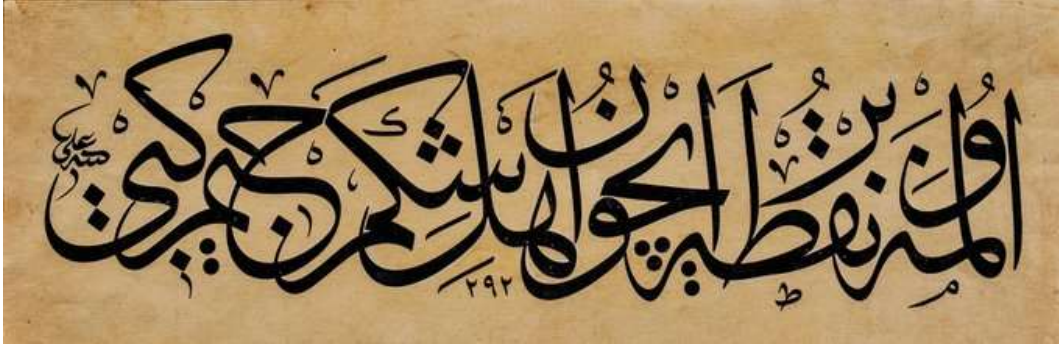 اولمه بر نقطه ایچون اهل شکم جیم کبی
علی
٢٩٢